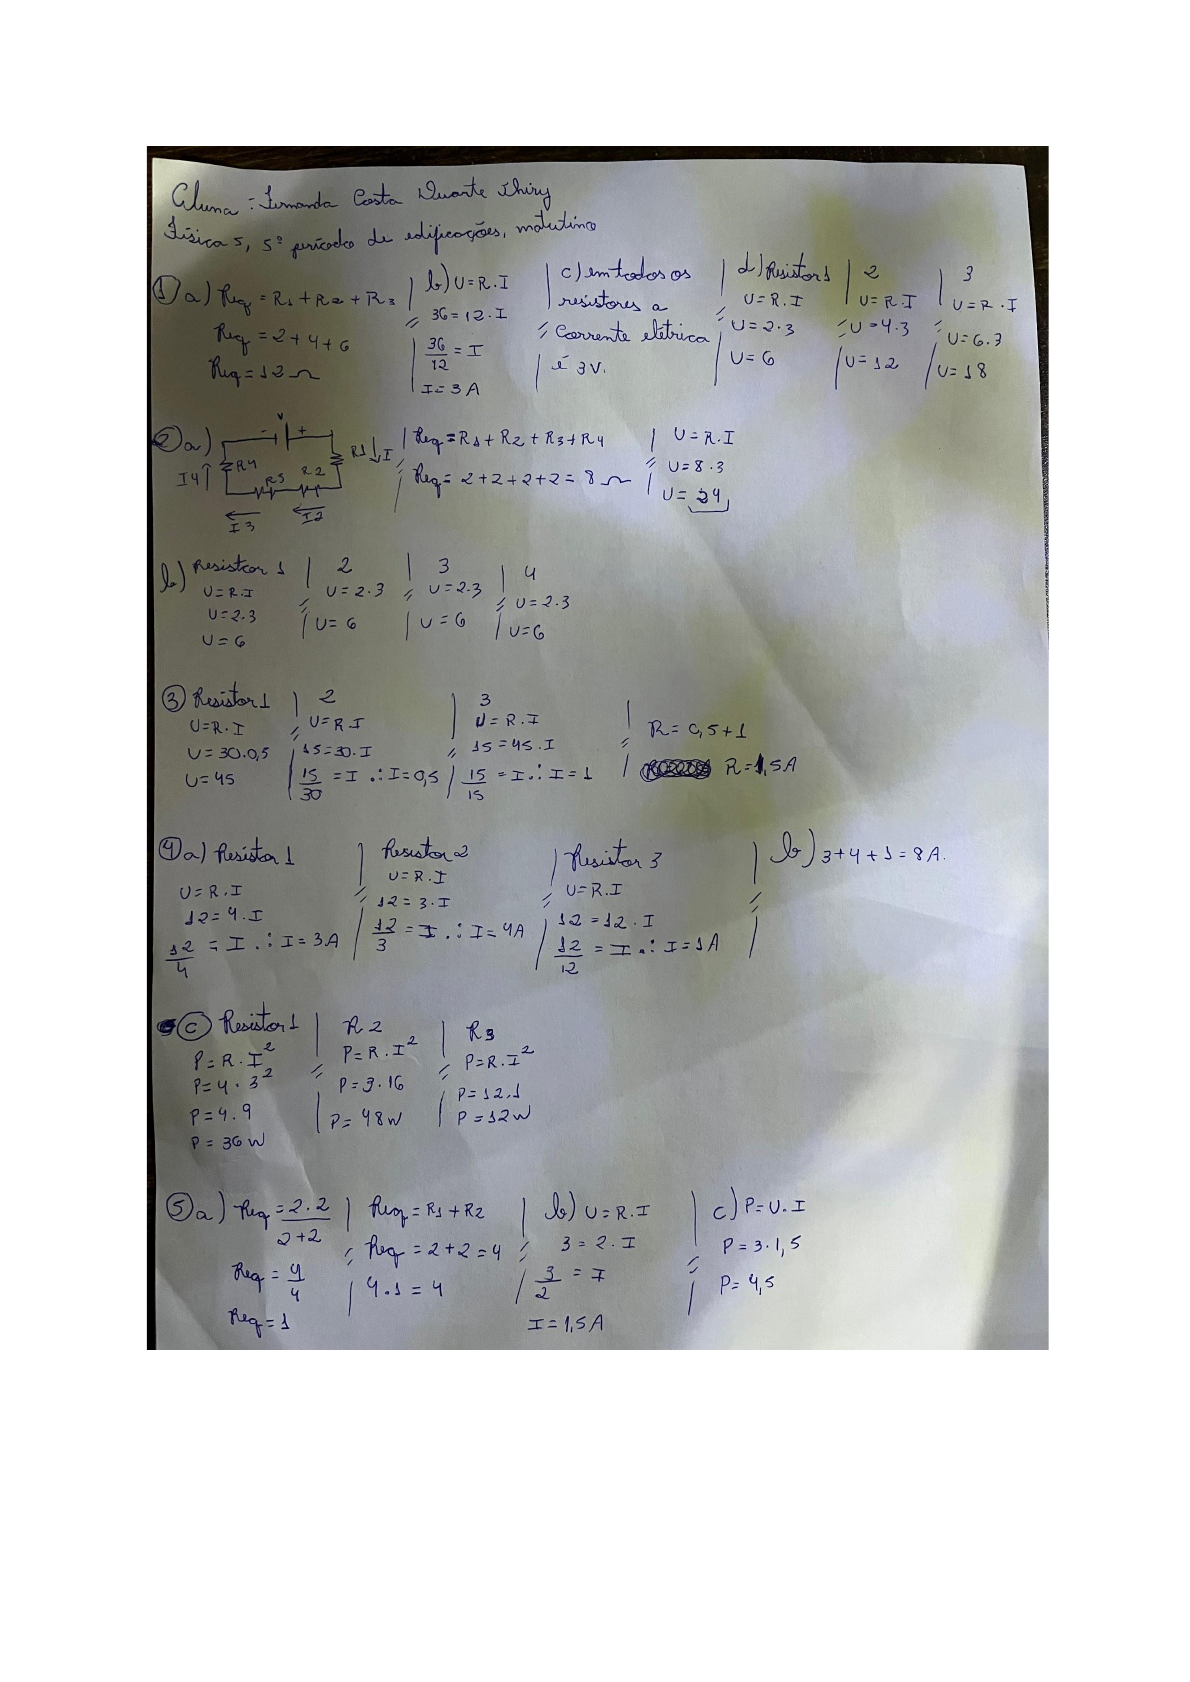 Aluna: Fernanda Costa Duarte Ihiry
Física 5, 5º período de edificações, matutino
① a) Req = R1 + R2 + R3
Req = 2 + 4 + 6
Req = 12 Ω
b) U = R . I
36 = 12 . I
36/12 = I
I = 3 A
c) em todos os
resistores a
corrente elétrica
é 3V.
d) Resistor 1
U = R . I
U = 2 . 3
U = 6
2
U = R . I
U = 4 . 3
U = 12
3
U = R . I
U = 6 . 3
U = 18
② a)
- +
R1 ↓ I
R2
R3
R4
I4 ↑
I3
I2
Req = R1 + R2 + R3 + R4
Req = 2 + 2 + 2 + 2 = 8 Ω
U = R . I
U = 8 . 3
U = 24
b) Resistor 1
U = R . I
U = 2 . 3
U = 6
2
U = 2 . 3
U = 6
3
U = 2 . 3
U = 6
4
U = 2 . 3
U = 6
③ Resistor 1
U = R . I
U = 30 . 0,5
U = 45
2
U = R . I
15 = 30 . I
15/30 = I ∴ I = 0,5
3
U = R . I
15 = 45 . I
15/15 = I ∴ I = 1
R = 0,5 + 1
R = 1,5 A
④ a) Resistor 1
U = R . I
12 = 4 . I
12/4 = I ∴ I = 3 A
Resistor 2
U = R . I
12 = 3 . I
12/3 = I ∴ I = 4A
Resistor 3
U = R . I
12 = 12 . I
12/12 = I ∴ I = 1A
b) 3 + 4 + 1 = 8 A.
c) Resistor 1
P = R . I²
P = 4 . 3²
P = 4 . 9
P = 36 W
R 2
P = R . I²
P = 3 . 16
P = 48 W
R 3
P = R . I²
P = 12 . 1
P = 12 W
⑤ a) Req = 2 . 2/2 + 2
Req = 4/4
Req = 1
Req = R1 + R2
Req = 2 + 2 = 4
4 . 1 = 4
b) U = R . I
3 = 2 . I
3/2 = I
I = 1,5 A
c) P = U . I
P = 3 . 1,5
P = 4,5